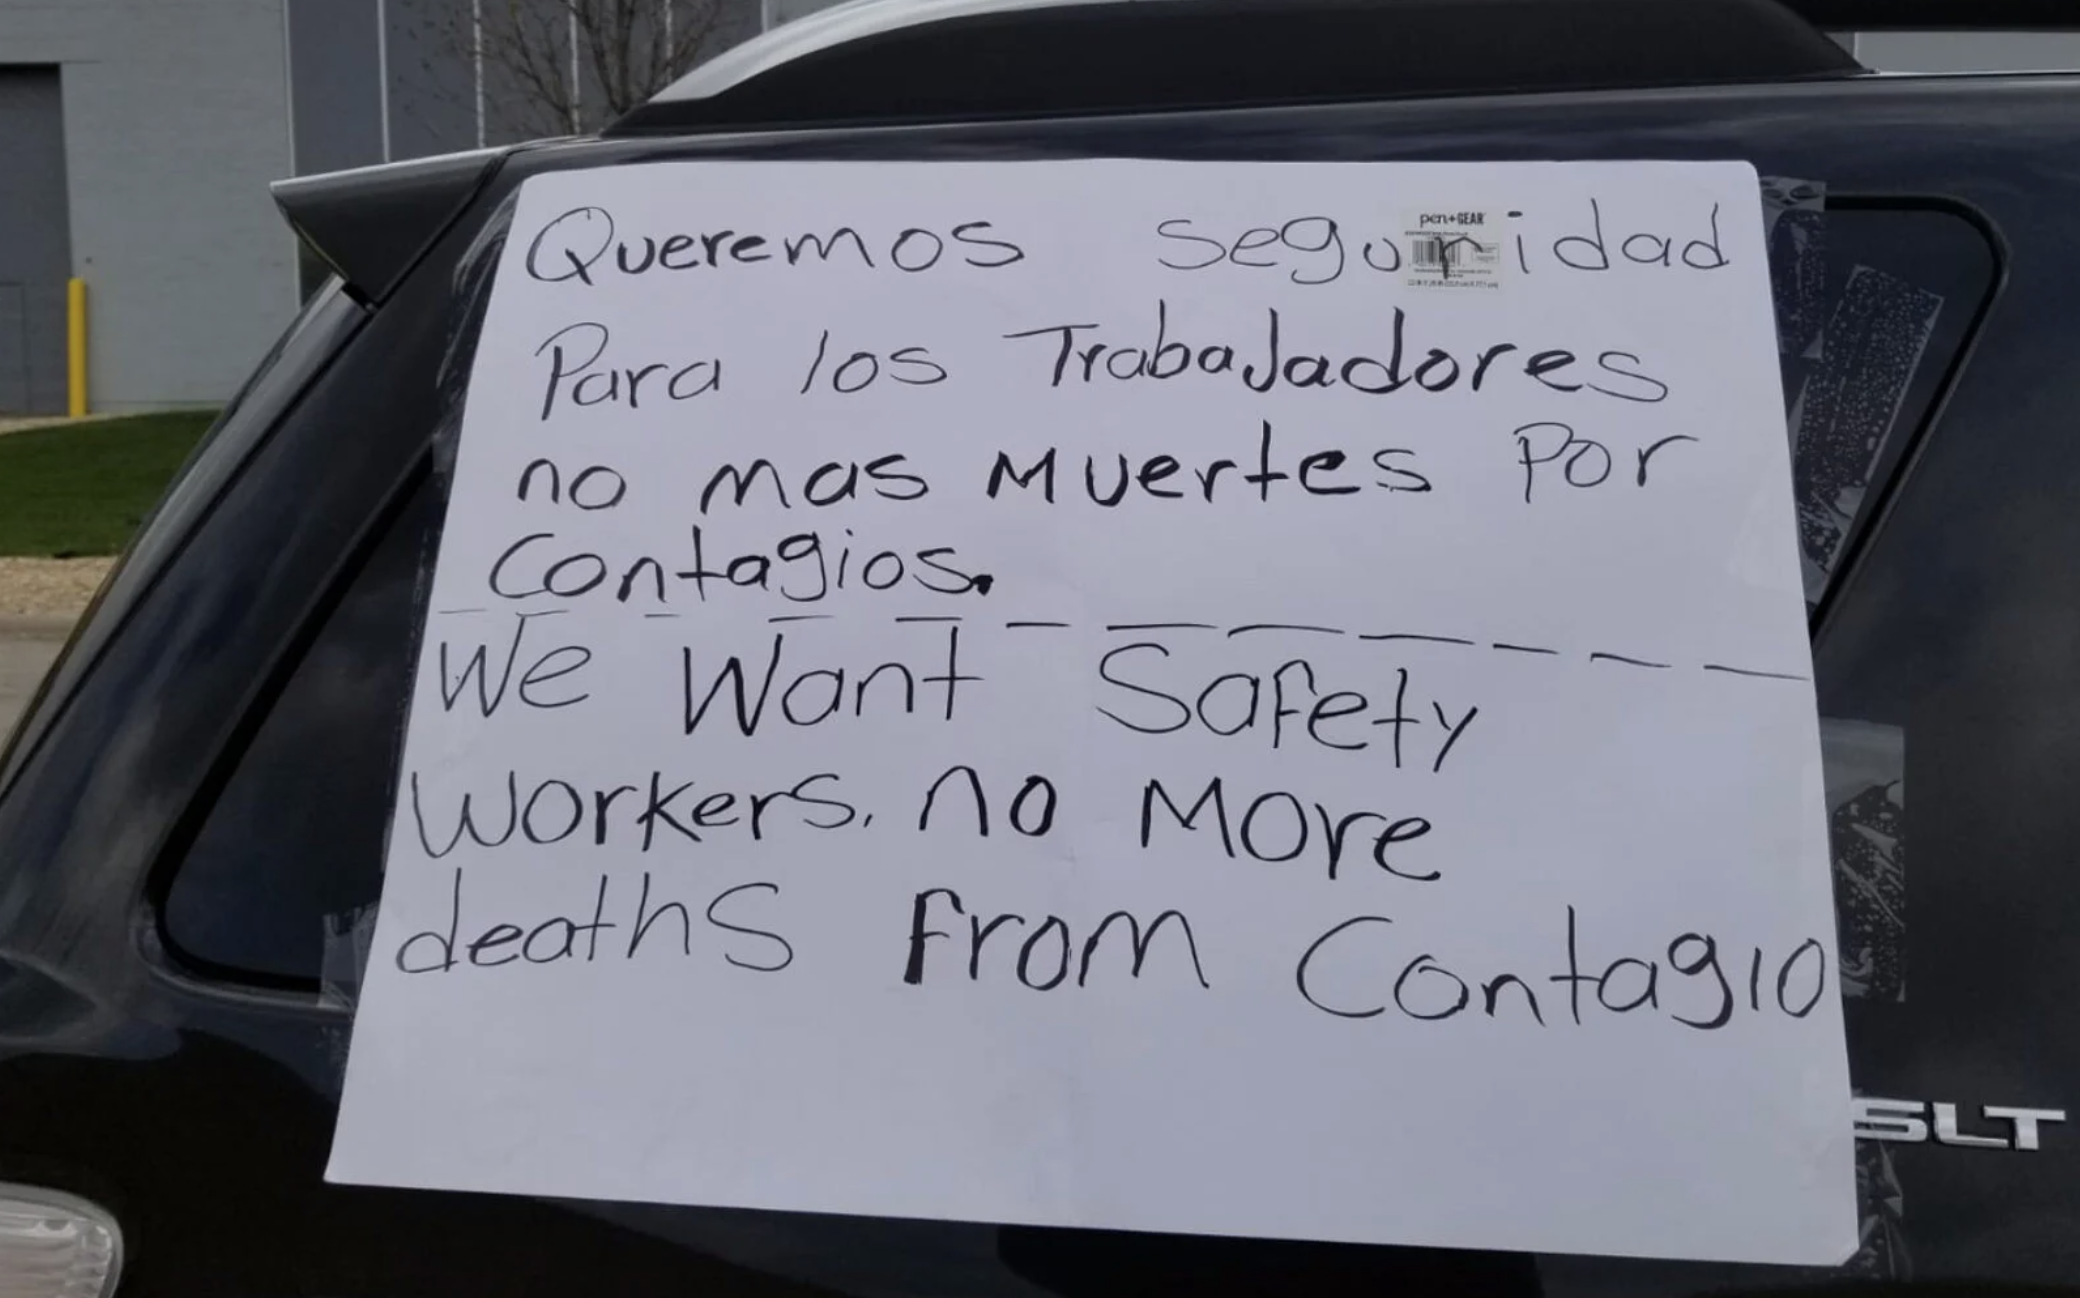 Queremos seguridad
pen+GEAR
Para los TrabaJadores
no mas Muertes Por
Contagios.
We Want Safety
Workers. no More
deaths From Contagio
SLT